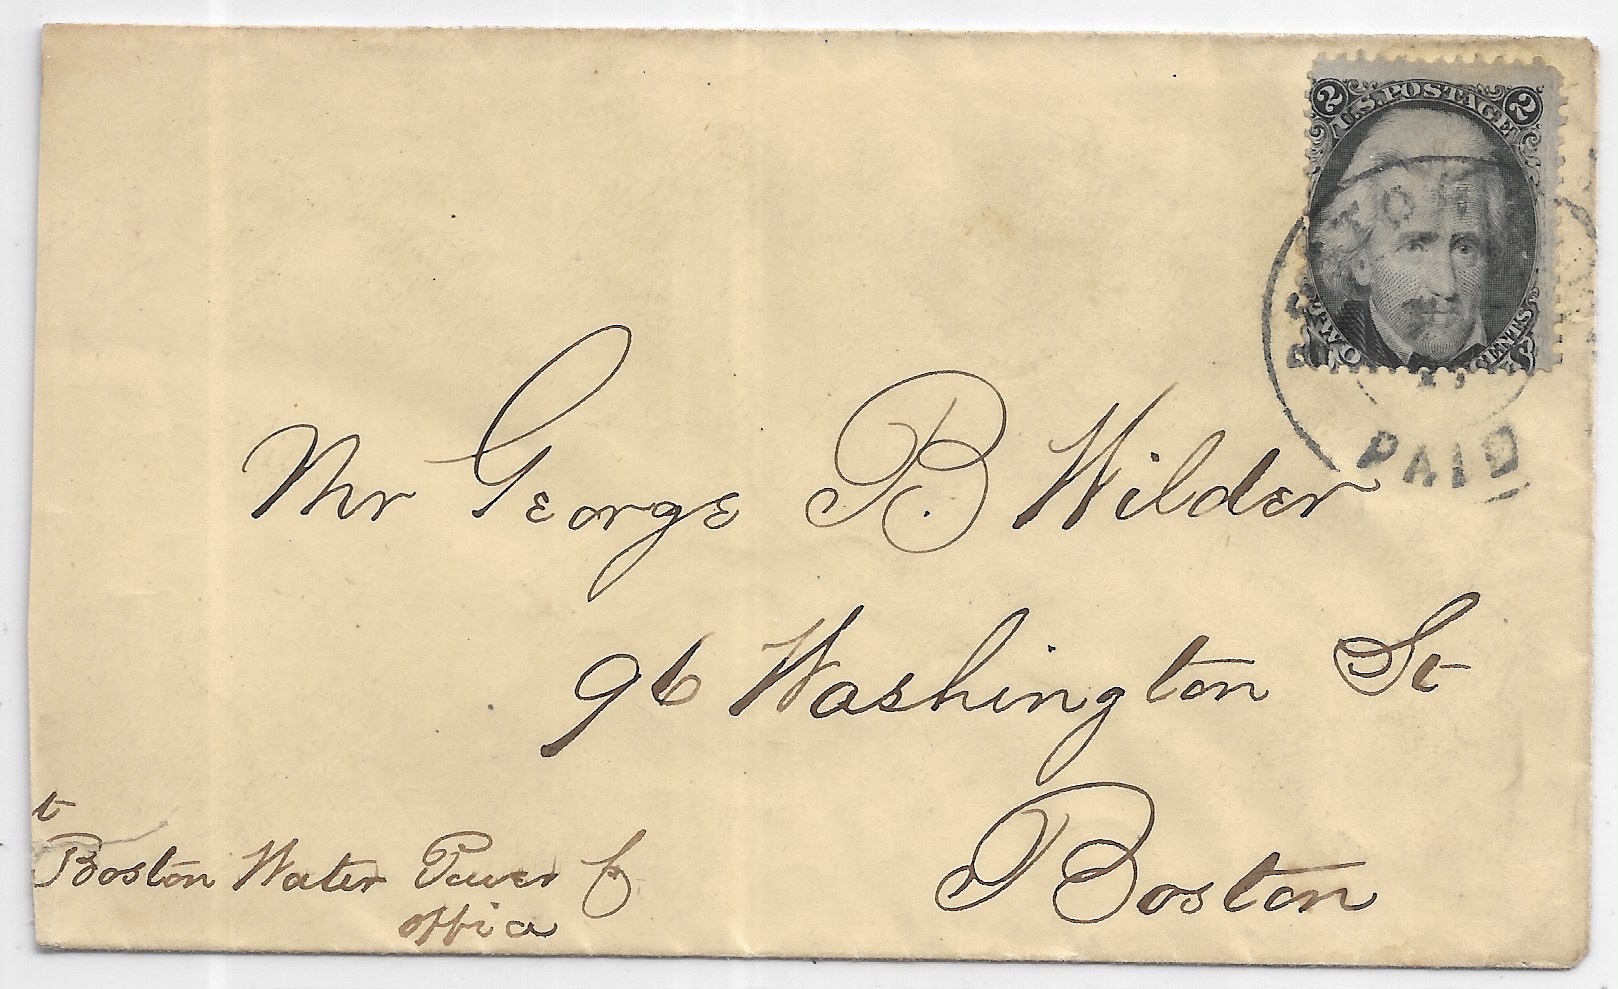 2 U.S. POSTAGE 2
TWO CENTS
PAID
Mr George B. Wilder
96 Washington St
Boston
Boston Water Power Co
office